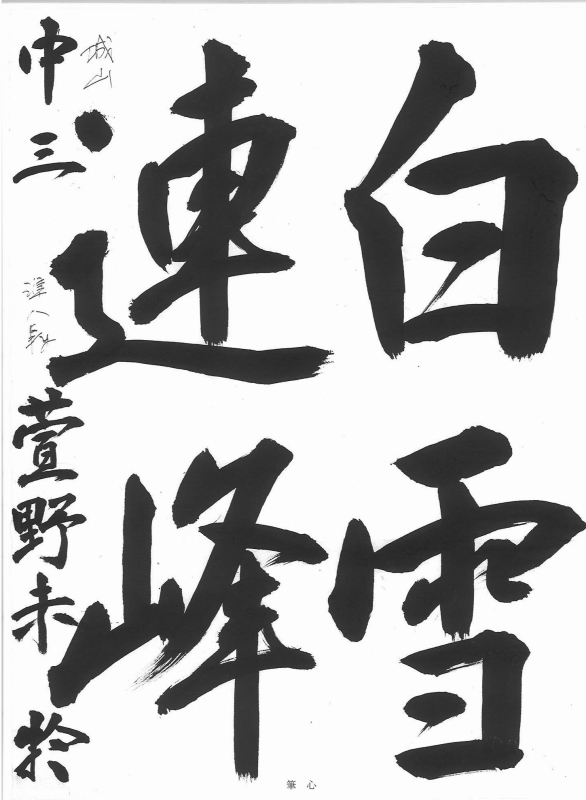 白雪
連峰
城山
準八段
中三 萱野未於
筆心